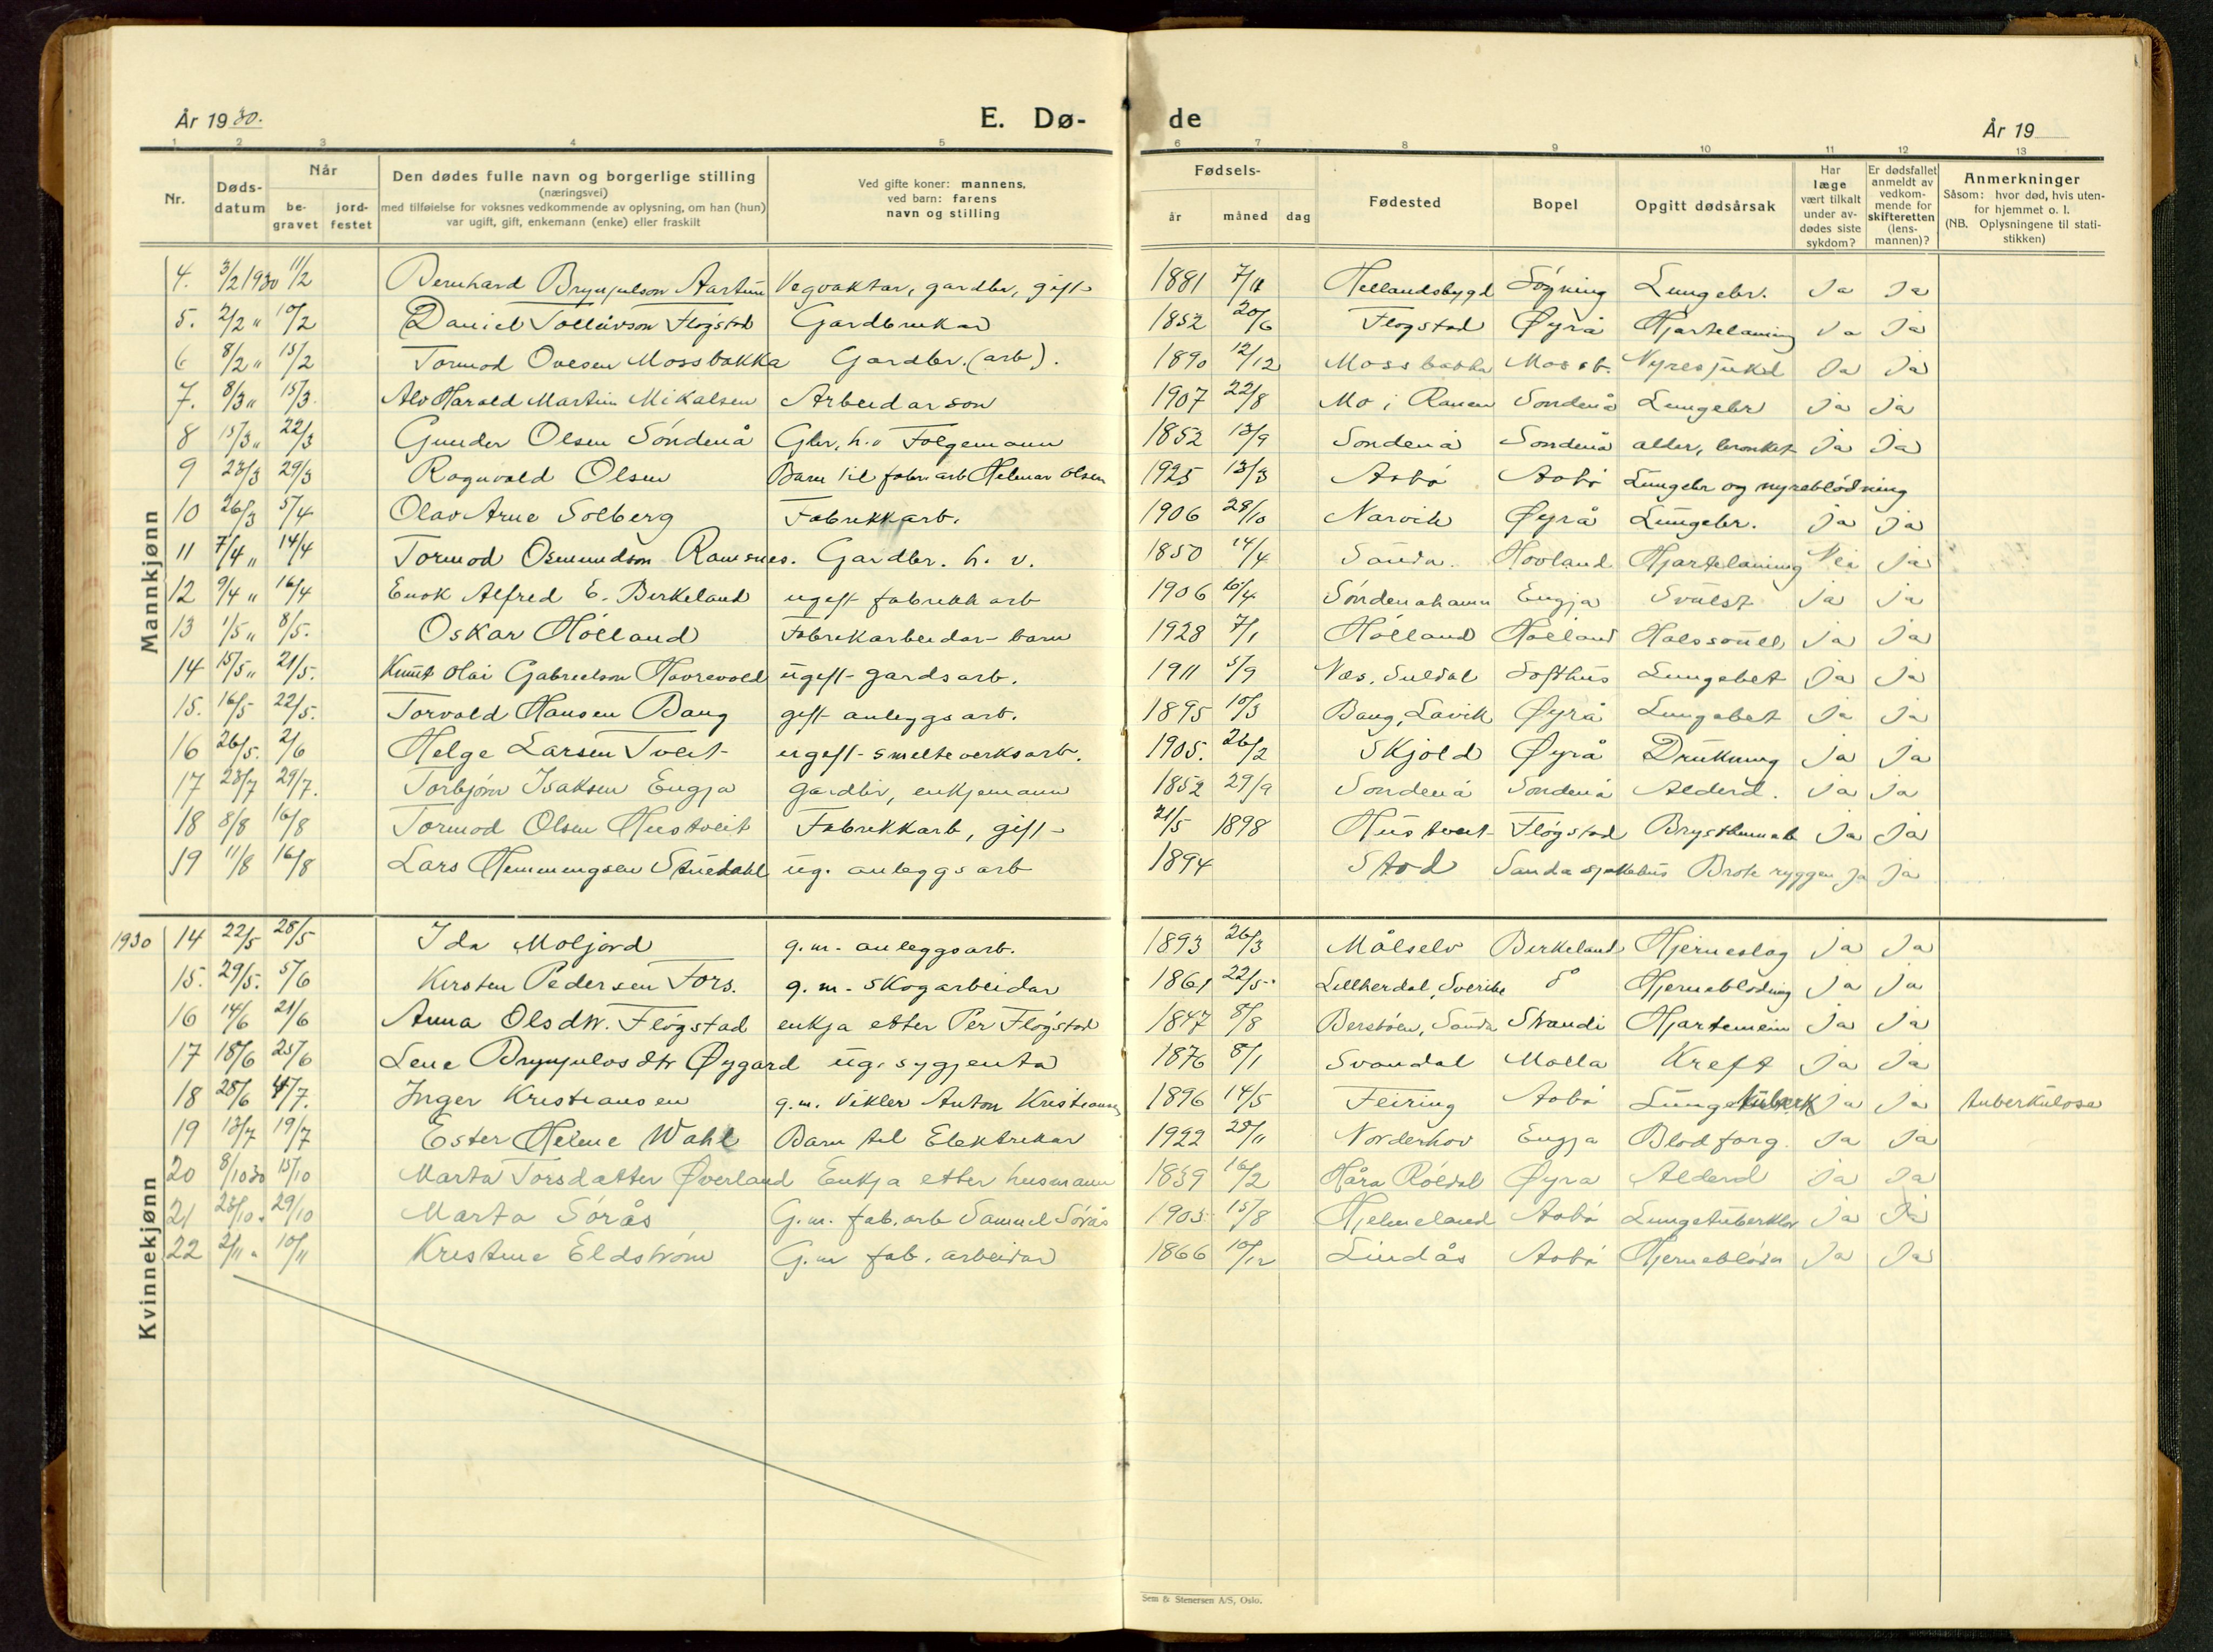 År 1930.
E. Dø-
de
År 19
1 2 3 4 5 6 7 8 9 10 11 12 13
Nr.
Døds-
datum
Når
be-
gravet
jord-
festet
Den dødes fulle navn og borgerlige stilling
(næringsvei)
med tilføielse for voksnes vedkommende av oplysning, om han (hun)
var ugift, gift, enkemann (enke) eller fraskilt
Ved gifte koner: mannens,
ved barn: farens
navn og stilling
Fødsels-
år måned dag
Fødested
Bopel
Opgitt dødsårsak
Har
læge
vært tilkalt
under av-
dødes siste
sykdom?
Er dødsfallet
anmeldt av
vedkom-
mende for
skifteretten
(lens-
mannen)?
Anmerkninger
Såsom: hvor død, hvis uten-
for hjemmet o. l.
(NB. Oplysningene til stati-
stikken)
Mannkjønn
4. 3/2 1930 11/2 Bernhard Brynjulson Aartun Vegvaktar, gardbr, gift 1881 7/11 Hellandsbygd Søgning Lungebr. Ja Ja
5. 2/2 " 10/2 Daniel Tolleivson Fløgstad Gardbrukar 1852 20/6 Fløgstad Øyrå Hjartelaming Ja Ja
6 8/2 " 15/2 Tormod Ovesen Mossbakka Gardbr. (arb). 1890 12/12 Mossbakka Mossb. Nyresjukd Ja Ja
7. 8/3 " 15/3. Alv Harald Martin Mikalsen Arbeidarson 1907 22/8 Mo i Ranen Søndenå Lungebr Ja Ja
8 15/3 " 22/3 Gunder Olsen Søndenå Gbr, h." Folgemann 1852 13/9 Søndenå Søndenå alder, bronkit Ja Ja
9 23/3 29/3 Ragnvald Olsen Barn til fabri arb Helmer Olsen 1925 13/3 Aabø Aabø Lungebr og nyreblødning
10 26/3 5/4 Olav Arne Solberg Fabrikkarb. 1906 28/10 Narvik Øyrå Lungebr. Ja Ja
11 7/4 " 14/4 Tormod Osmundson Ramsnes. Gardbr. h. v. 1850 14/4 Sauda. Hovland Hjartelaming Nei Ja
12 9/4 " 16/4 Enok Alfred E. Birkeland ugift fabrikk arb 1906 16/4 Søndenåhamn Engja Svulst Ja Ja
13 1/5 " 8/5. Oskar Hølland Fabrikarbeidar-barn 1928 7/1 Hølland Hølland Halssøull Ja Ja
14 15/5 " 21/5. Knut Olai Gabrielson Havrevold ugift gardsarb. 1911 5/9 Nes, Suldal Softhus Lungebet Ja Ja
15. 16/5 22/5. Torvald Hansen Bang gift anleggsarb. 1895 10/3 Bang, Lavik Øyrå Lungebet Ja Ja
16 26/5. 2/6 Helge Larsen Tveit ugift smelteverksarb. 1905. 26/2 Skjold Øyrå Drukning Ja Ja
17 23/7 29/7. Torbjørn Isaksen Engja gardbr, enkjemann 1852 29/9 Søndenå Søndenå Alderd. Ja Ja
18 8/8 16/8 Tormod Olsen Hustveit Fabrikkarb, gift 21/5 1898 Hustveit Fløgstad Brysthinneb Ja Ja
19 11/8 16/8 Lars Hemmingsen Stuedahl ug. anleggsarb 1894 Stod Sauda sjukehus Brote ryggen Ja Ja
Kvinnekjønn
1930 14 22/5 28/5 Ida Moljord g.m. anleggsarb. 1893 26/3 Målselv Birkeland Hjerneslag Ja Ja
15. 29/5. 5/6 Kirsten Pedersen Fors. g.m. skogarbeidar 1861 22/5 Lillherdal, Sverike Hjerneblødning Ja Ja
16 14/6 21/6 Anna Olsdtr. Fløgstad enkja etter Per Fløgstad 1847 8/8 Sauda Straudi Hjartemein Ja Ja
17 18/6 25/6 Lene Brynjulvsdtr Øygard ug. sygjenta 1876 8/1 Svandal Molla Kreft Ja Ja
18 28/6 4/7. Inger Kristiansen g.m. Vikler Anton Kristiansen 1896 14/5 Feiring Aabø Lungetuberk Ja Ja tuberkulose
19 13/7 19/7 Ester Helene Wahl Barn til Elektrikar 1922 28/11 Norderhov Engja Blodforg. Ja Ja
20 8/10 30 15/10 Marta Torsdatter Øverland Enkja etter husmann 1839 16/2 Håra Røldal Øyra Alderd Ja Ja
21 23/10 " 29/10 Marta Sørås G.m. fab. arb Samuel Sørås 1905 15/8 Hjelmeland Aabø Lungetuberklos Ja Ja
22 2/11 " 10/11 Kristine Eldstrøm G.m fab. arbeidar 1866 10/12 Lindås Aabø Hjerneblødn Ja Ja
Sem & Stenersen A/S, Oslo.